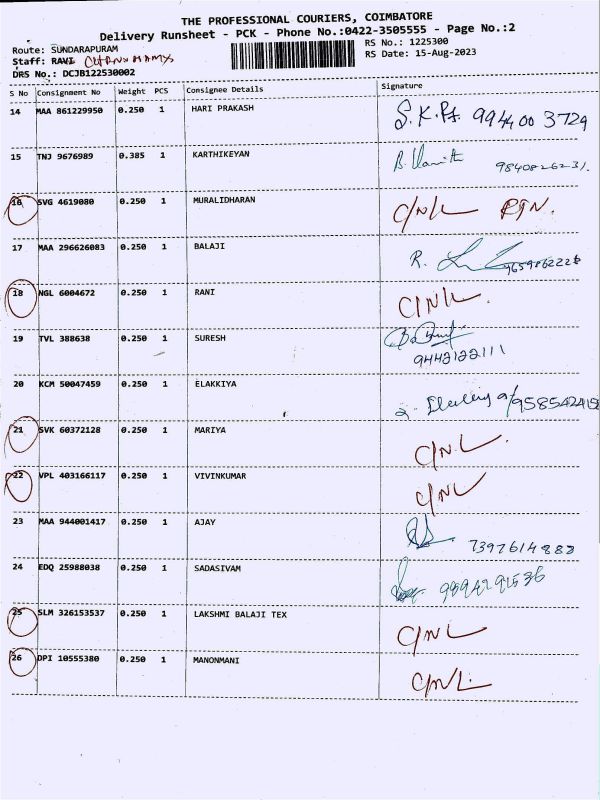 THE PROFESSIONAL COURIERS, COIMBATORE
Delivery Runsheet - PCK - Phone No.:0422-3505555 - Page No.:2
Route: SUNDARAPURAM
RS No.: 1225300
Staff: RAVI
RS Date: 15-Aug-2023
DRS No.: DCJB122530002
S No Consignment No Weight PCS Consignee Details Signature
14 MAA 861229950 0.250 1 HARI PRAKASH 994400 3729
15 TNJ 9676989 0.385 1 KARTHIKEYAN 9840826231
16 SVG 4619080 0.250 1 MURALIDHARAN C/N/L RTN.
17 MAA 296626083 0.250 1 BALAJI R.
18 NGL 6004672 0.250 1 RANI C/N/L.
19 TVL 388638 0.250 1 SURESH 9442122111
20 KCM 50047459 0.250 1 ELAKKIYA 9585424158
21 SVK 60372128 0.250 1 MARIYA C/NL.
22 VPL 403166117 0.250 1 VIVINKUMAR C/NL
23 MAA 944001417 0.250 1 AJAY 7397614888
24 EDQ 25988038 0.250 1 SADASIVAM
25 SLM 326153537 0.250 1 LAKSHMI BALAJI TEX C/NL
26 DPI 10555380 0.250 1 MANONMANI C/NL.